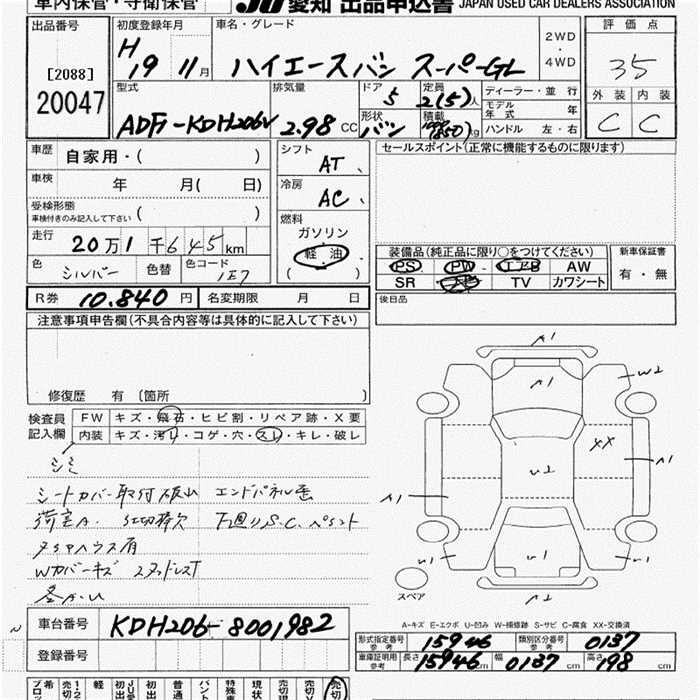 車内保管・守衛保管 JU 愛知 出品申込書 JAPAN USED CAR DEALERS ASSOCIATION
出品番号 初度登録年月 車名・グレード 2WD ・ 4WD 評価点
[2088] H 19 年 11月 ハイエースバン スーパーGL 35
20047 型式 排気量 ドア 5 定員 2(5)人 ディーラー・並行 外装 内装
ADF-KDH206V 2.98 CC 形状 バン 積載 kg モデル年式 年 C C
ハンドル 左・右
車歴 自家用・( ) シフト AT セールスポイント(正常に機能するものに限ります)
車検 年 月( 日) 冷房 AC
受検形態 車検付きのみ記入して下さい ( ) 燃料
走行 20万1千645km ガソリン
軽油
( )
装備品(純正品に限り○をつけてください) 新車保証書
色 シルバー 色替 色コード 1E7 PS PW エアB AW 有・無
SR TV カワシート
R券 10.840円 名変期限 月 日 後日品
注意事項申告欄(不具合内容等は具体的に記入して下さい)
修復歴 有 〔箇所
検査員記入欄 FW キズ・飛石・ヒビ割・リペア跡・X要
内装 キズ・汚れ・コゲ・穴・スレ・キレ・破レ
シミ
シートカバー取付
下廻りS.C.
タイヤハウス
Wカバーキズ スタッドレス
A1
A1
W2
U2
XX
A1
A1
U1
U1
U1
A2
スペア
A-キズ E-エクボ U-凹み W-補修跡 S-サビ C-腐食 XX-交換済
車台番号 KDH206-8001982
登録番号
形式指定番号 参考 15946 類別区分番号 参考 0137
車庫証明用 参考 長さ 15946 cm 幅 0137 cm 高さ 198 cm